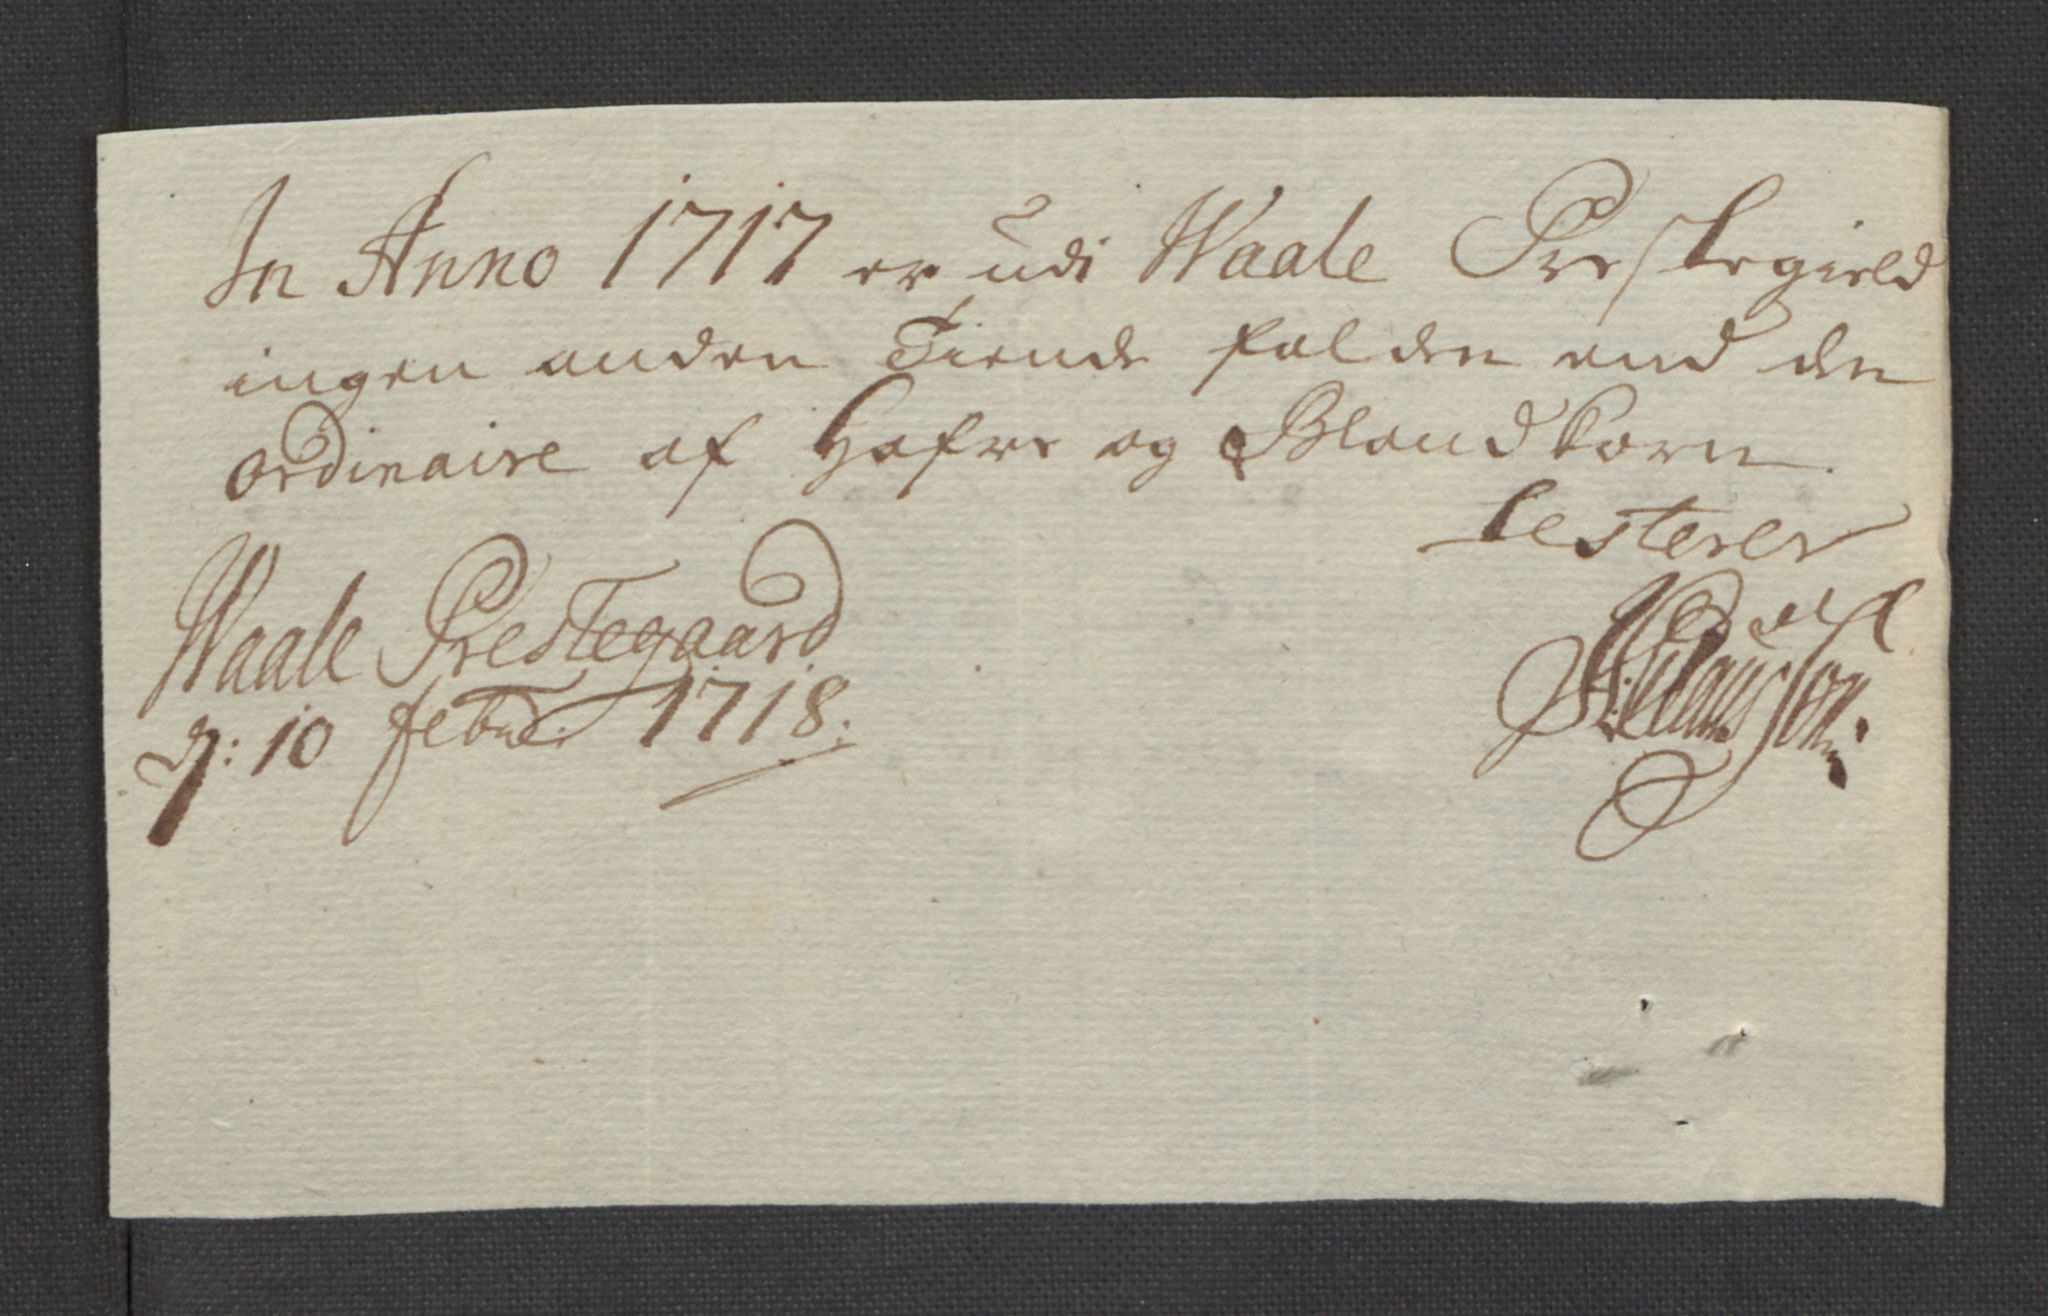 In Anno 1717 er udi Waale Prestegield
ingen anden Tiende falden end den
ordinaire af Hafre og Blandkorn.
testerer
Waale Prestegaard
d: 10 febru: 1718.